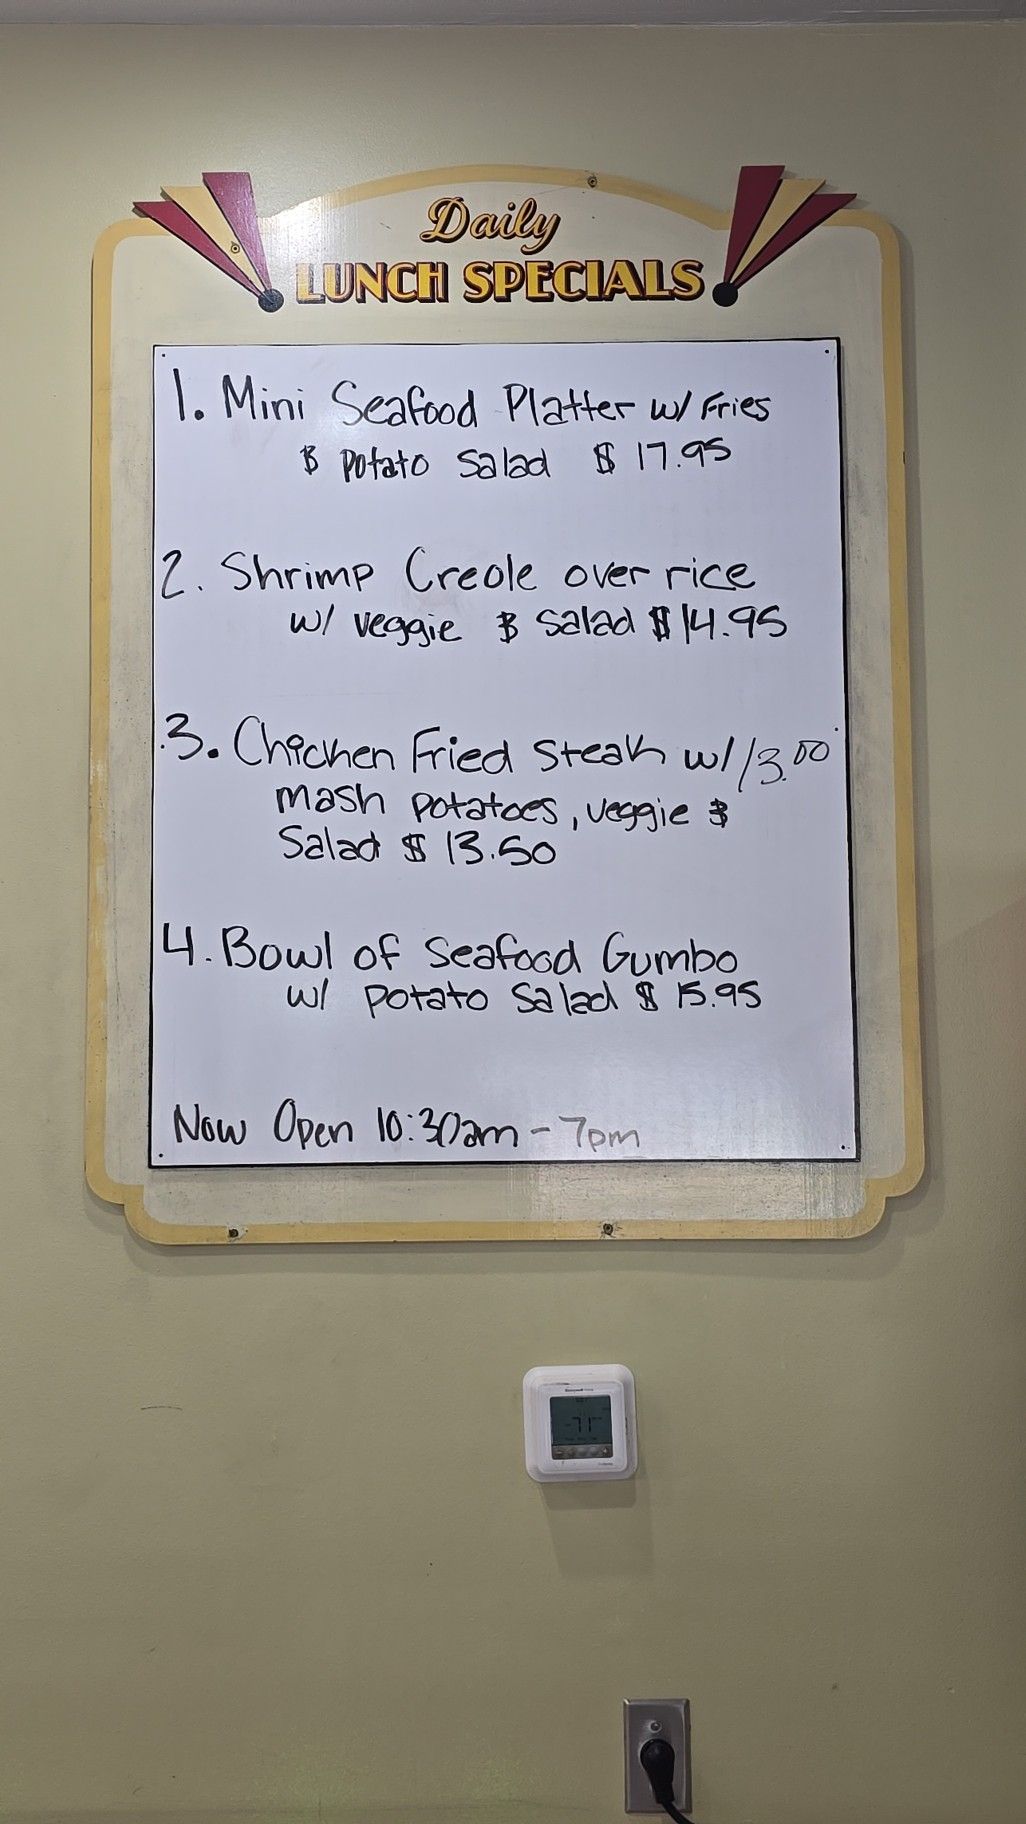 Daily
LUNCH SPECIALS
1. Mini Seafood Platter w/ Fries
& Potato Salad $17.95
2. Shrimp Creole over rice
w/ veggie & Salad $14.95
3. Chicken Fried Steak w/ 13.00
mash potatoes, veggie &
Salad $13.50
4. Bowl of Seafood Gumbo
w/ potato Salad $15.95
Now Open 10:30am - 7pm
Honeywell
71